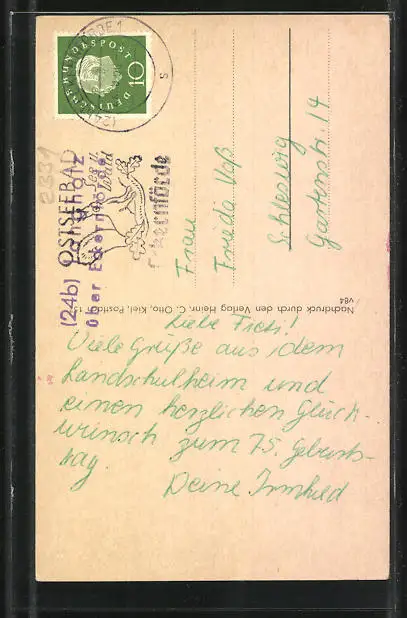 DEUTSCHE BUNDESPOST
10
(24b)
s
2331
OSTSEEBAD
Eckernförde
(24b) Langholz
über Eckernförde
Frau
Frieda Voß
Schleswig
Gartenstr. 14
Nachdruck durch den Verlag Heinr. C. Otto, Kiel, Postfach
v84
Liebe Friedi!
Viele Grüße aus dem
Landschulheim und
einen herzlichen Glück-
wunsch zum 75. Geburts-
tag.
Deine Irmhild